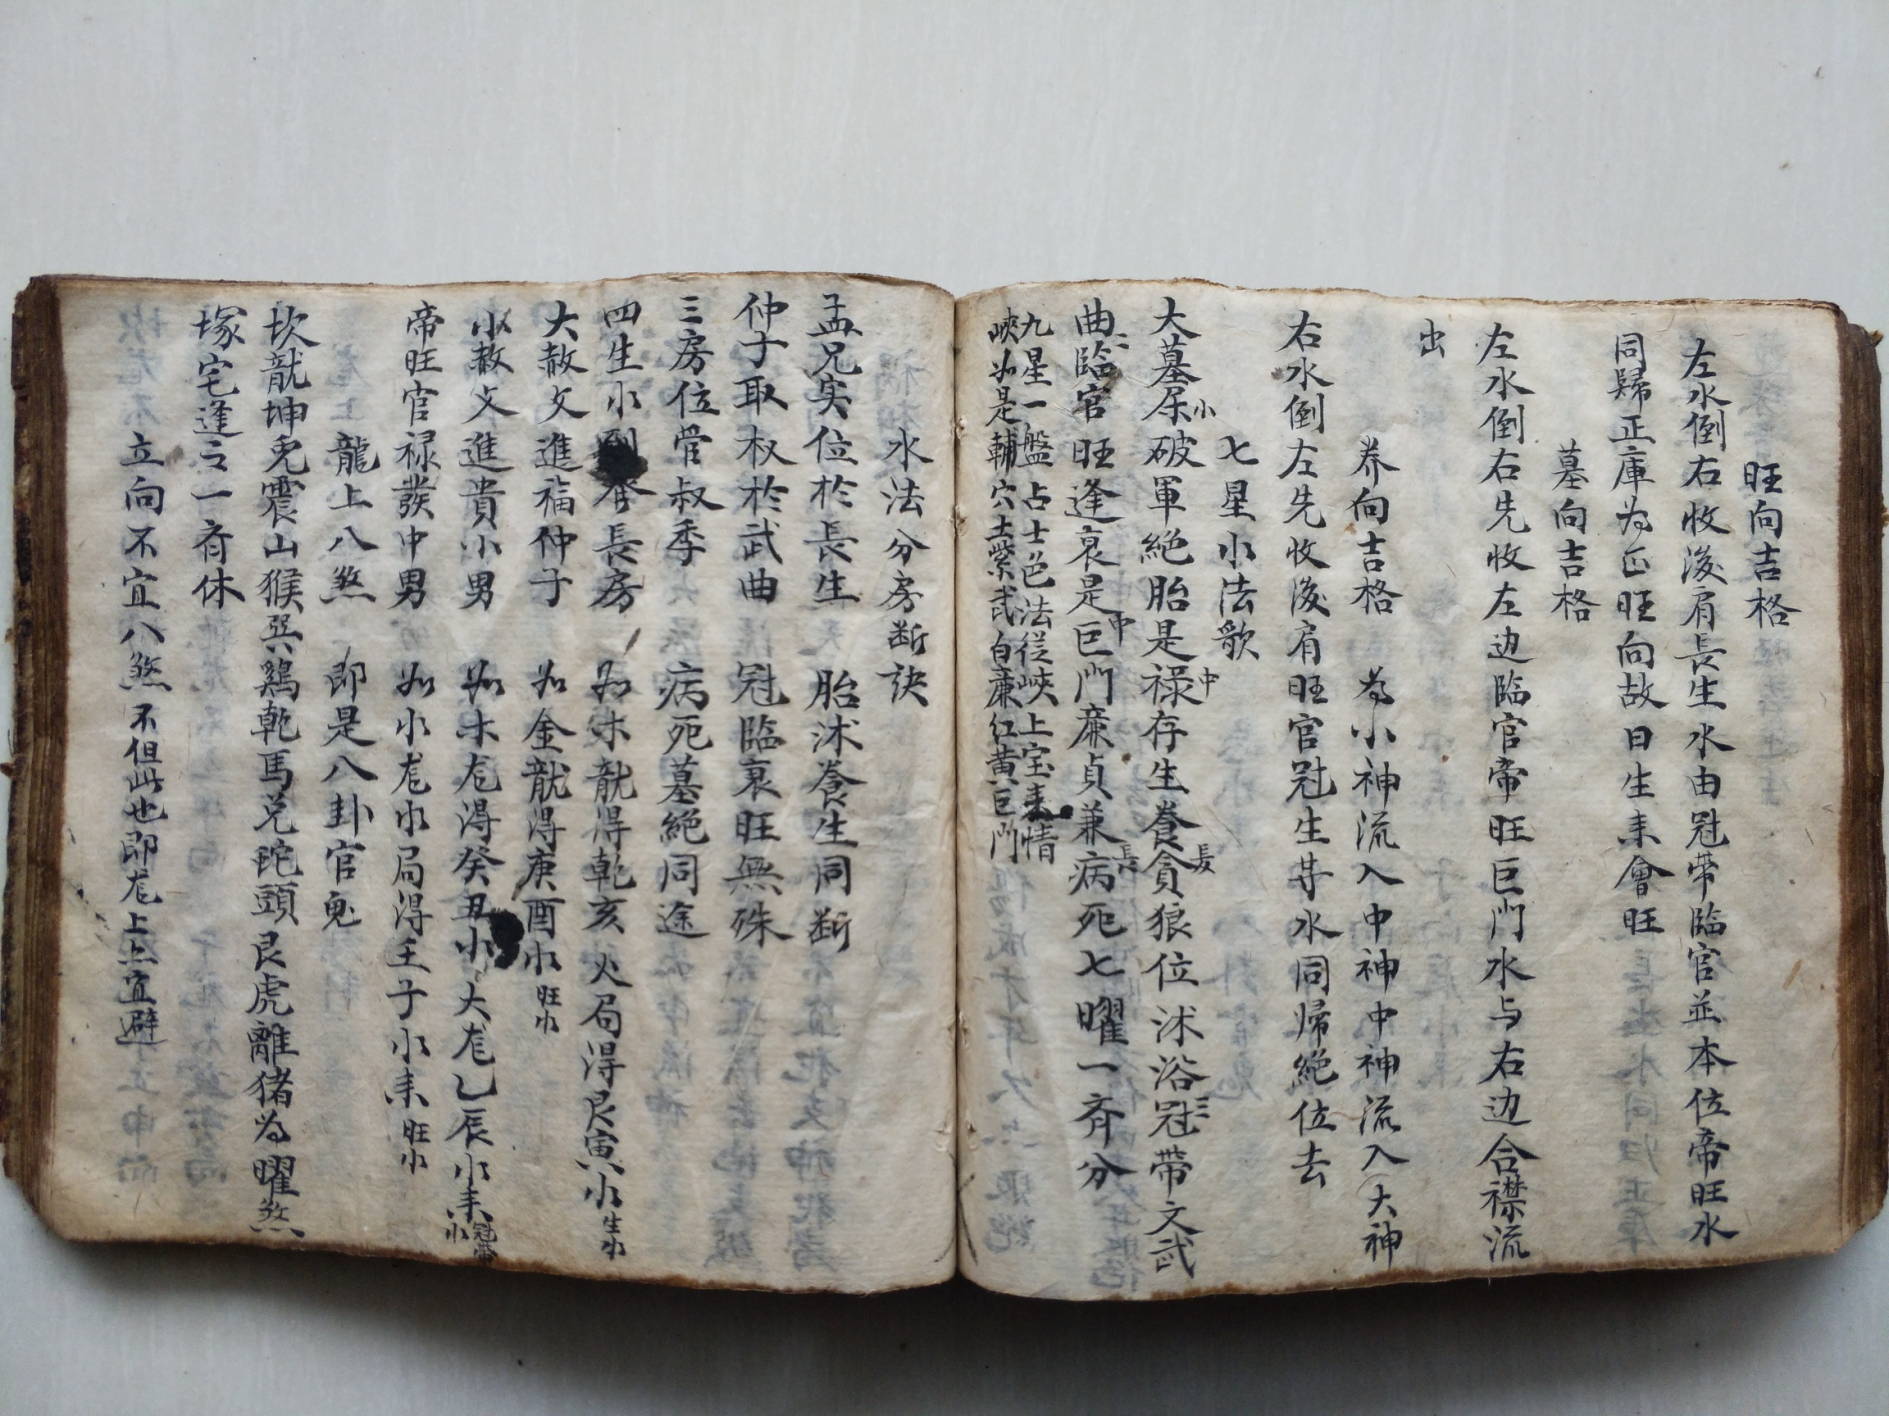 旺向吉格
左水倒右收後肩長生水由冠带臨官並本位帝旺水
同歸正庫为正旺向故曰生来會旺
墓向吉格
左水倒右先收左边臨官帝旺巨门水与右边合襟流
出
养向吉格 為小神流入中神中神流入大神
右水倒左先收後肩旺官冠生养水同帰絶位去
七星水法歌
大墓原小破軍絕胎是禄中存生養貪長狼位沭浴冠三帶文武
曲二臨官旺逢衰是巨中门廉貞兼病長死七曜一齐分
九星一盤占士色法従峽上宝来情
峽如是輔穴土紫武白廉红黄巨门
水法分房断訣
孟兄寅位於長生 胎沭養生同断
仲子取权於武曲 冠臨衰旺無殊
三房位管叔季 病死墓絕同途
四生水到者長房 如木龍得乾亥火局得艮寅水生水
大赦文進福仲子 如金龍得庚酉水旺水
小赦文進貴小男 如木龙得癸丑水大龙乙辰水来冠帶水
帝旺官禄發中男 如水龙水局得壬子水来旺水
龍上八煞 即是八卦官鬼
坎龍坤兎震山猴巽鷄乾馬兑蛇頭艮虎離猪为曜煞
塚宅逢之一斉休
立向不宜八煞不但此也即龙上上宜避